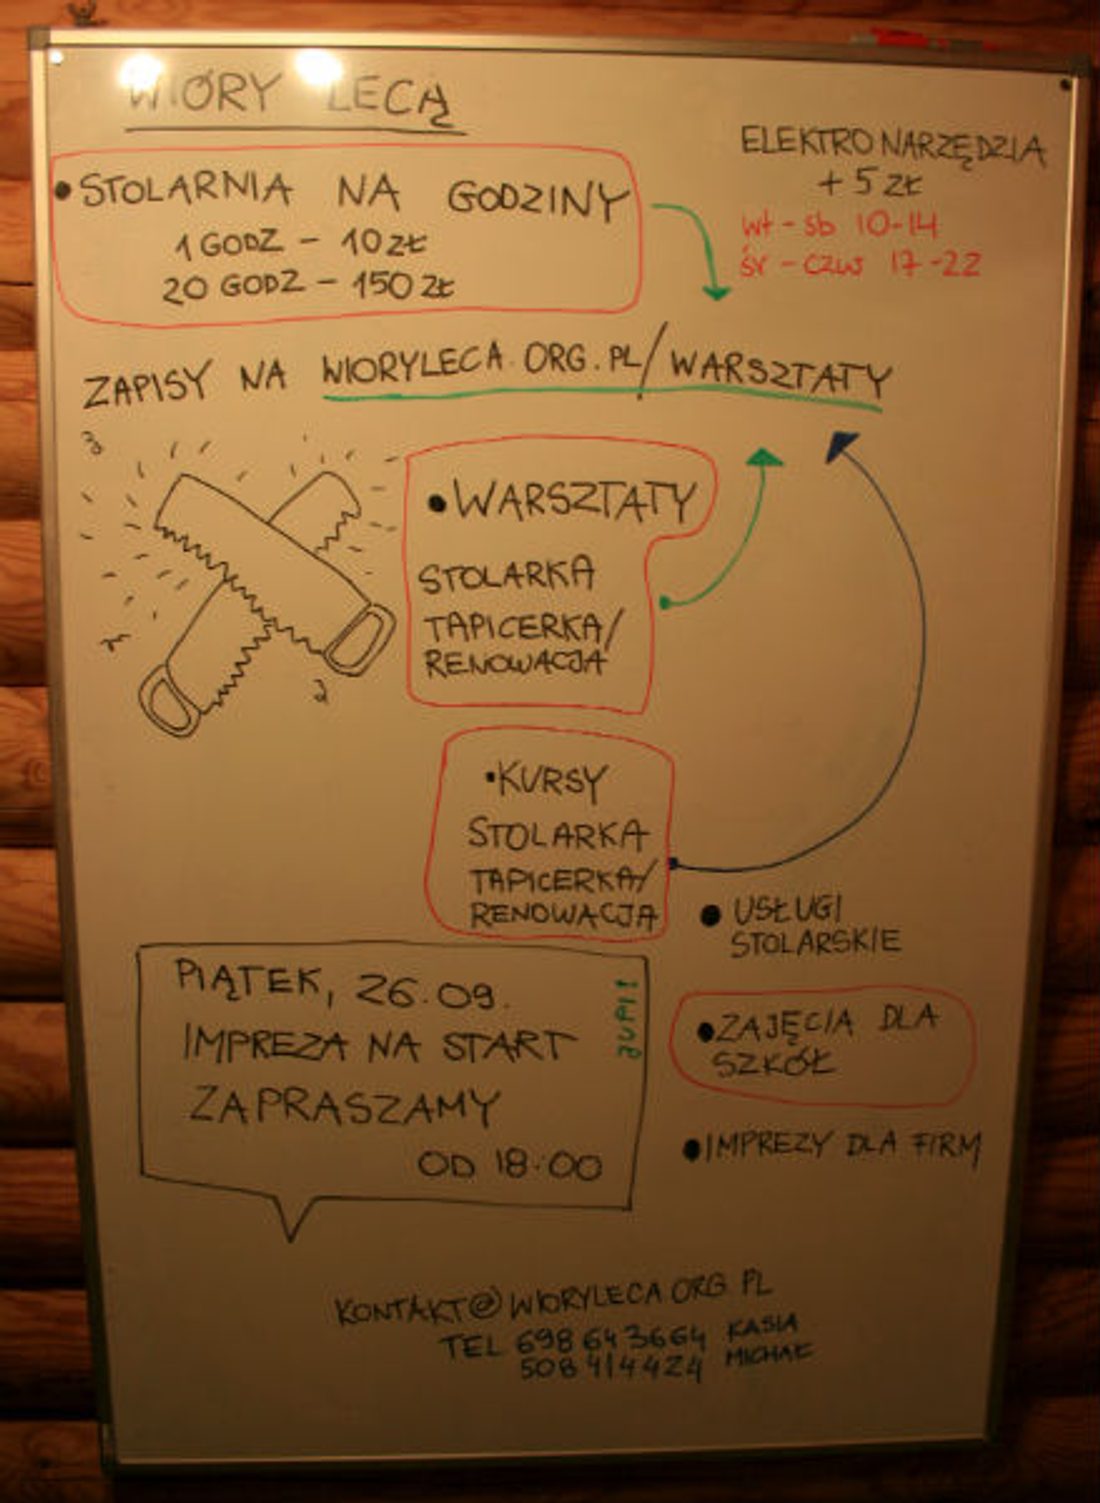 WIÓRY LECĄ
• STOLARNIA NA GODZINY
1 GODZ – 10 ZŁ
20 GODZ – 150 ZŁ
ELEKTRONARZĘDZIA
+ 5 ZŁ
wt - sb 10-14
śr - czw 17-22
ZAPISY NA WIORYLECA.ORG.PL/WARSZTATY
• WARSZTATY
STOLARKA
TAPICERKA/
RENOWACJA
• KURSY
STOLARKA
TAPICERKA/
RENOWACJA
• USŁUGI
STOLARSKIE
PIĄTEK, 26.09.
IMPREZA NA START
ZAPRASZAMY
OD 18.00
JUPI!
• ZAJĘCIA DLA
SZKÓŁ
• IMPREZY DLA FIRM
KONTAKT@WIORYLECA.ORG.PL
TEL 698 643664 KASIA
508 414424 MICHAŁ